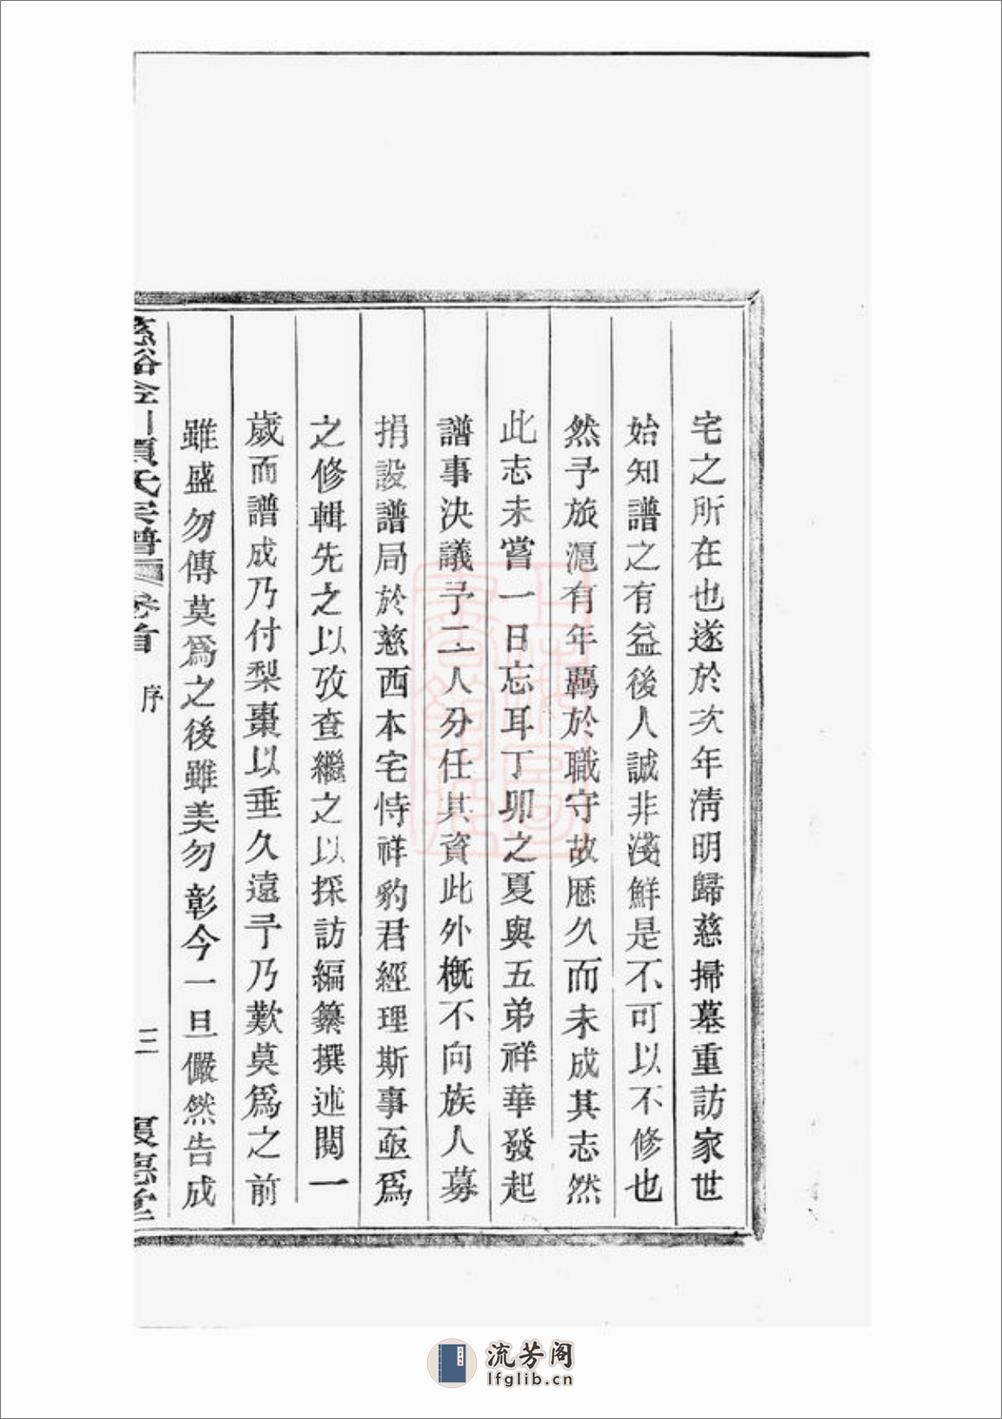 宅之所在也遂於次年淸明歸慈掃墓重訪家世
始知譜之有益後人誠非淺鮮是不可以不修也
然予旅滬有年羈於職守故歷久而未成其志然
此志未嘗一日忘耳丁卯之夏與五弟祥華發起
譜事決議予二人分任其資此外槪不向族人募
捐設譜局於慈西本宅恃祥豹君經理斯事亟爲
之修輯先之以攷查繼之以採訪編纂撰述閱一
歲而譜成乃付梨棗以垂久遠予乃歎莫爲之前
雖盛勿傳莫爲之後雖美勿彰今一旦儼然告成
氏宗譜 卷首 序 三
流芳阁
lfglib.cn